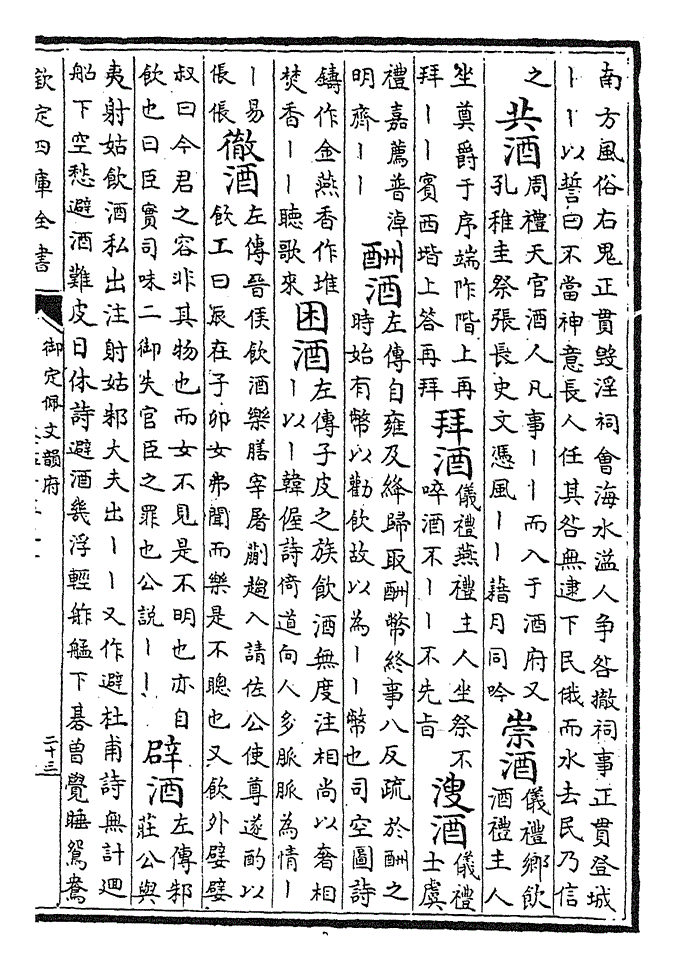 南方風俗右鬼正貫毀淫祠會海水溢人争咎撤祠事正貫登城
丨丨以誓曰不當神意長人任其咎無逮下民俄而水去民乃信
之
共酒
周禮天官酒人凡事丨丨而入于酒府又
孔稚圭祭張長史文憑風丨丨藉月同吟
崇酒
儀禮鄉飲
酒禮主人
坐奠爵于序端阼階上再
拜丨丨賓西堦上答再拜
拜酒
儀禮燕禮主人坐祭不
啐酒不丨丨不先旨
溲酒
儀禮
士虞
禮嘉薦普淖
明齊丨丨
酬酒
左傳自雍及絳歸取酬幣終事八反疏於酬之
時始有幣以勸飲故以為丨丨幣也司空圖詩
鑄作金燕香作堆
焚香丨丨聽歌來
困酒
左傳子皮之族飲酒無度注相尚以奢相
丨以丨韓偓詩倚道向人多脈脈為情丨
丨易
倀倀
徹酒
左傳晉侯飲酒樂膳宰屠蒯趨入請佐公使尊遂酌以
飲工曰辰在子卯女弗聞而樂是不聰也又飲外嬖嬖
叔曰今君之容非其物也而女不見是不明也亦自
飲也曰臣實司味二御失官臣之罪也公説丨丨
辟酒
左傳邾
莊公與
夷射姑飲酒私出注射姑邾大夫出丨丨又作避杜甫詩無計迴
船下空愁避酒難皮日休詩避酒幾浮輕舴艋下碁曾覺睡鴛鴦
欽定四庫全書
御定佩文韻府
二十三